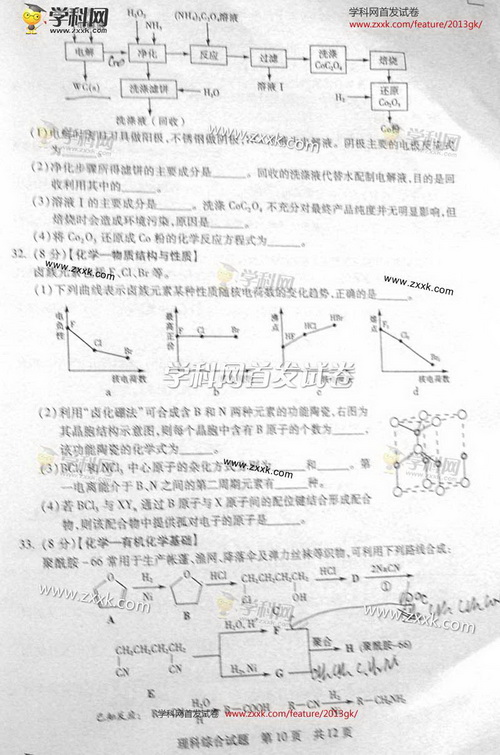 学科网
zxxk.com
学科网首发试卷
www.zxxk.com/feature/2013gk/
H₂O₂
NH₃
(NH₄)₂C₂O₄溶液
电解
净化
反应
过滤
洗涤
CoC₂O₄
焙烧
WC(s)
洗涤滤饼
H₂O
溶液Ⅰ
H₂
还原
Co₂O₃
洗涤液(回收)
Co粉
不锈钢做阴极
电解液。阴极主要的电极反应式
为
(2)净化步骤所得滤饼的主要成分是______。回收的洗涤液代替水配制电解液,目的是回
收利用其中的______。
(3)溶液Ⅰ的主要成分是______。洗涤CoC₂O₄不充分对最终产品纯度并无明显影响,但
焙烧时会造成环境污染,原因是______。
(4)将Co₂O₃还原成Co粉的化学反应方程式为______。
32.(8分)【化学—物质结构与性质】
卤族元素 F、Cl、Br等。
(1)下列曲线表示卤族元素某种性质随核电荷数的变化趋势,正确的是______。
电负性
F
Cl
Br
核电荷数
a
最高正价
F
Cl
Br
b
沸点
HF
HCl
HBr
c
F₂
Cl₂
Br₂
核电荷数
d
学科网首发试卷
(2)利用“卤化硼法”可合成含B和N两种元素的功能陶瓷,右图为
其晶胞结构示意图,则每个晶胞中含有B原子的个数为______,
该功能陶瓷的化学式为______。
(3)BCl₃和NCl₃中心原子的杂化方式 为______和______。第
一电离能介于B、N之间的第二周期元素有______种。
(4)若BCl₃与XYₙ通过B原子与X原子间的配位键结合形成配合
物,则该配合物中提供孤对电子的原子是______。
33.(8分)【化学—有机化学基础】
聚酰胺—66常用于生产帐篷、渔网、降落伞及弹力丝袜等织物,可利用下列路线合成:
O
A
H₂
Ni
O
B
HCl
CH₂CH₂CH₂CH₂
Cl
OH
C
HCl
D
2NaCN
①
CH₂CH₂CH₂CH₂
CN
CN
E
H₂O, H⁺
F
H₂, Ni
G
聚合
H (聚酰胺-66)
已知反应:
R—COOH
R—CN
H₂
Ni
R—CH₂NH₂
www.zxxk.com/feature/2013gk/
理科综合试题 第10页 共12页